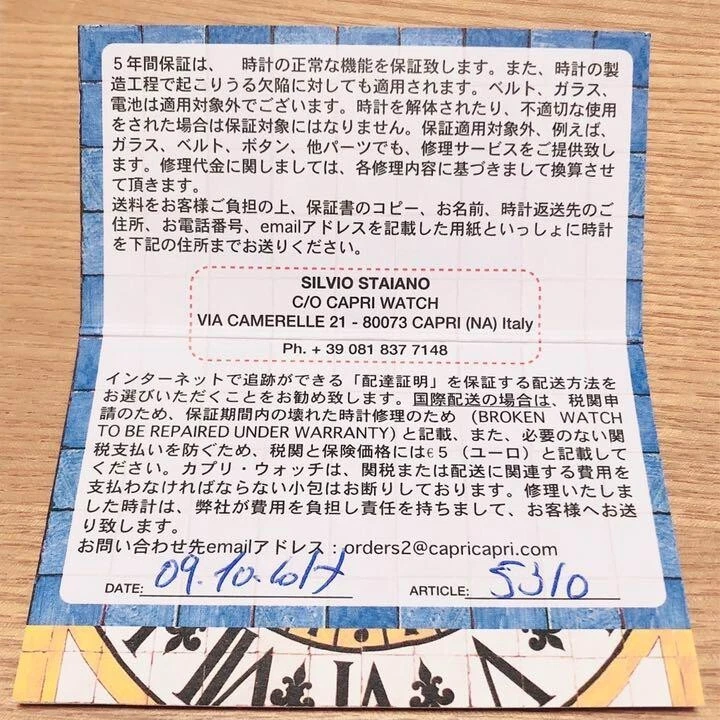 5年間保証は、 時計の正常な機能を保証致します。また、時計の製
造工程で起こりうる欠陥に対しても適用されます。ベルト、ガラス、
電池は適用対象外でございます。時計を解体されたり、不適切な使用
をされた場合は保証対象にはなりません。保証適用対象外、例えば、
ガラス、ベルト、ボタン、他パーツでも、修理サービスをご提供致し
ます。修理代金に関しましては、各修理内容に基づきまして換算させ
て頂きます。
送料をお客様ご負担の上、保証書のコピー、お名前、時計返送先のご
住所、お電話番号、emailアドレスを記載した用紙といっしょに時計
を下記の住所までお送りください。
SILVIO STAIANO
C/O CAPRI WATCH
VIA CAMERELLE 21 - 80073 CAPRI (NA) Italy
Ph. + 39 081 837 7148
インターネットで追跡ができる「配達証明」を保証する配送方法を
お選びいただくことをお勧め致します。国際配送の場合は、税関申
請のため、保証期間内の壊れた時計修理のため (BROKEN WATCH
TO BE REPAIRED UNDER WARRANTY) と記載、また、必要のない関
税支払いを防ぐため、税関と保険価格には€5（ユーロ）と記載して
ください。カプリ・ウォッチは、関税または配送に関連する費用を
支払わなければならない小包はお断りしております。修理いたしま
した時計は、弊社が費用を負担し責任を持ちまして、お客様へお送
り致します。
お問い合わせ先emailアドレス：orders2@capricapri.com
DATE: 09.10.2017 ARTICLE: 5310